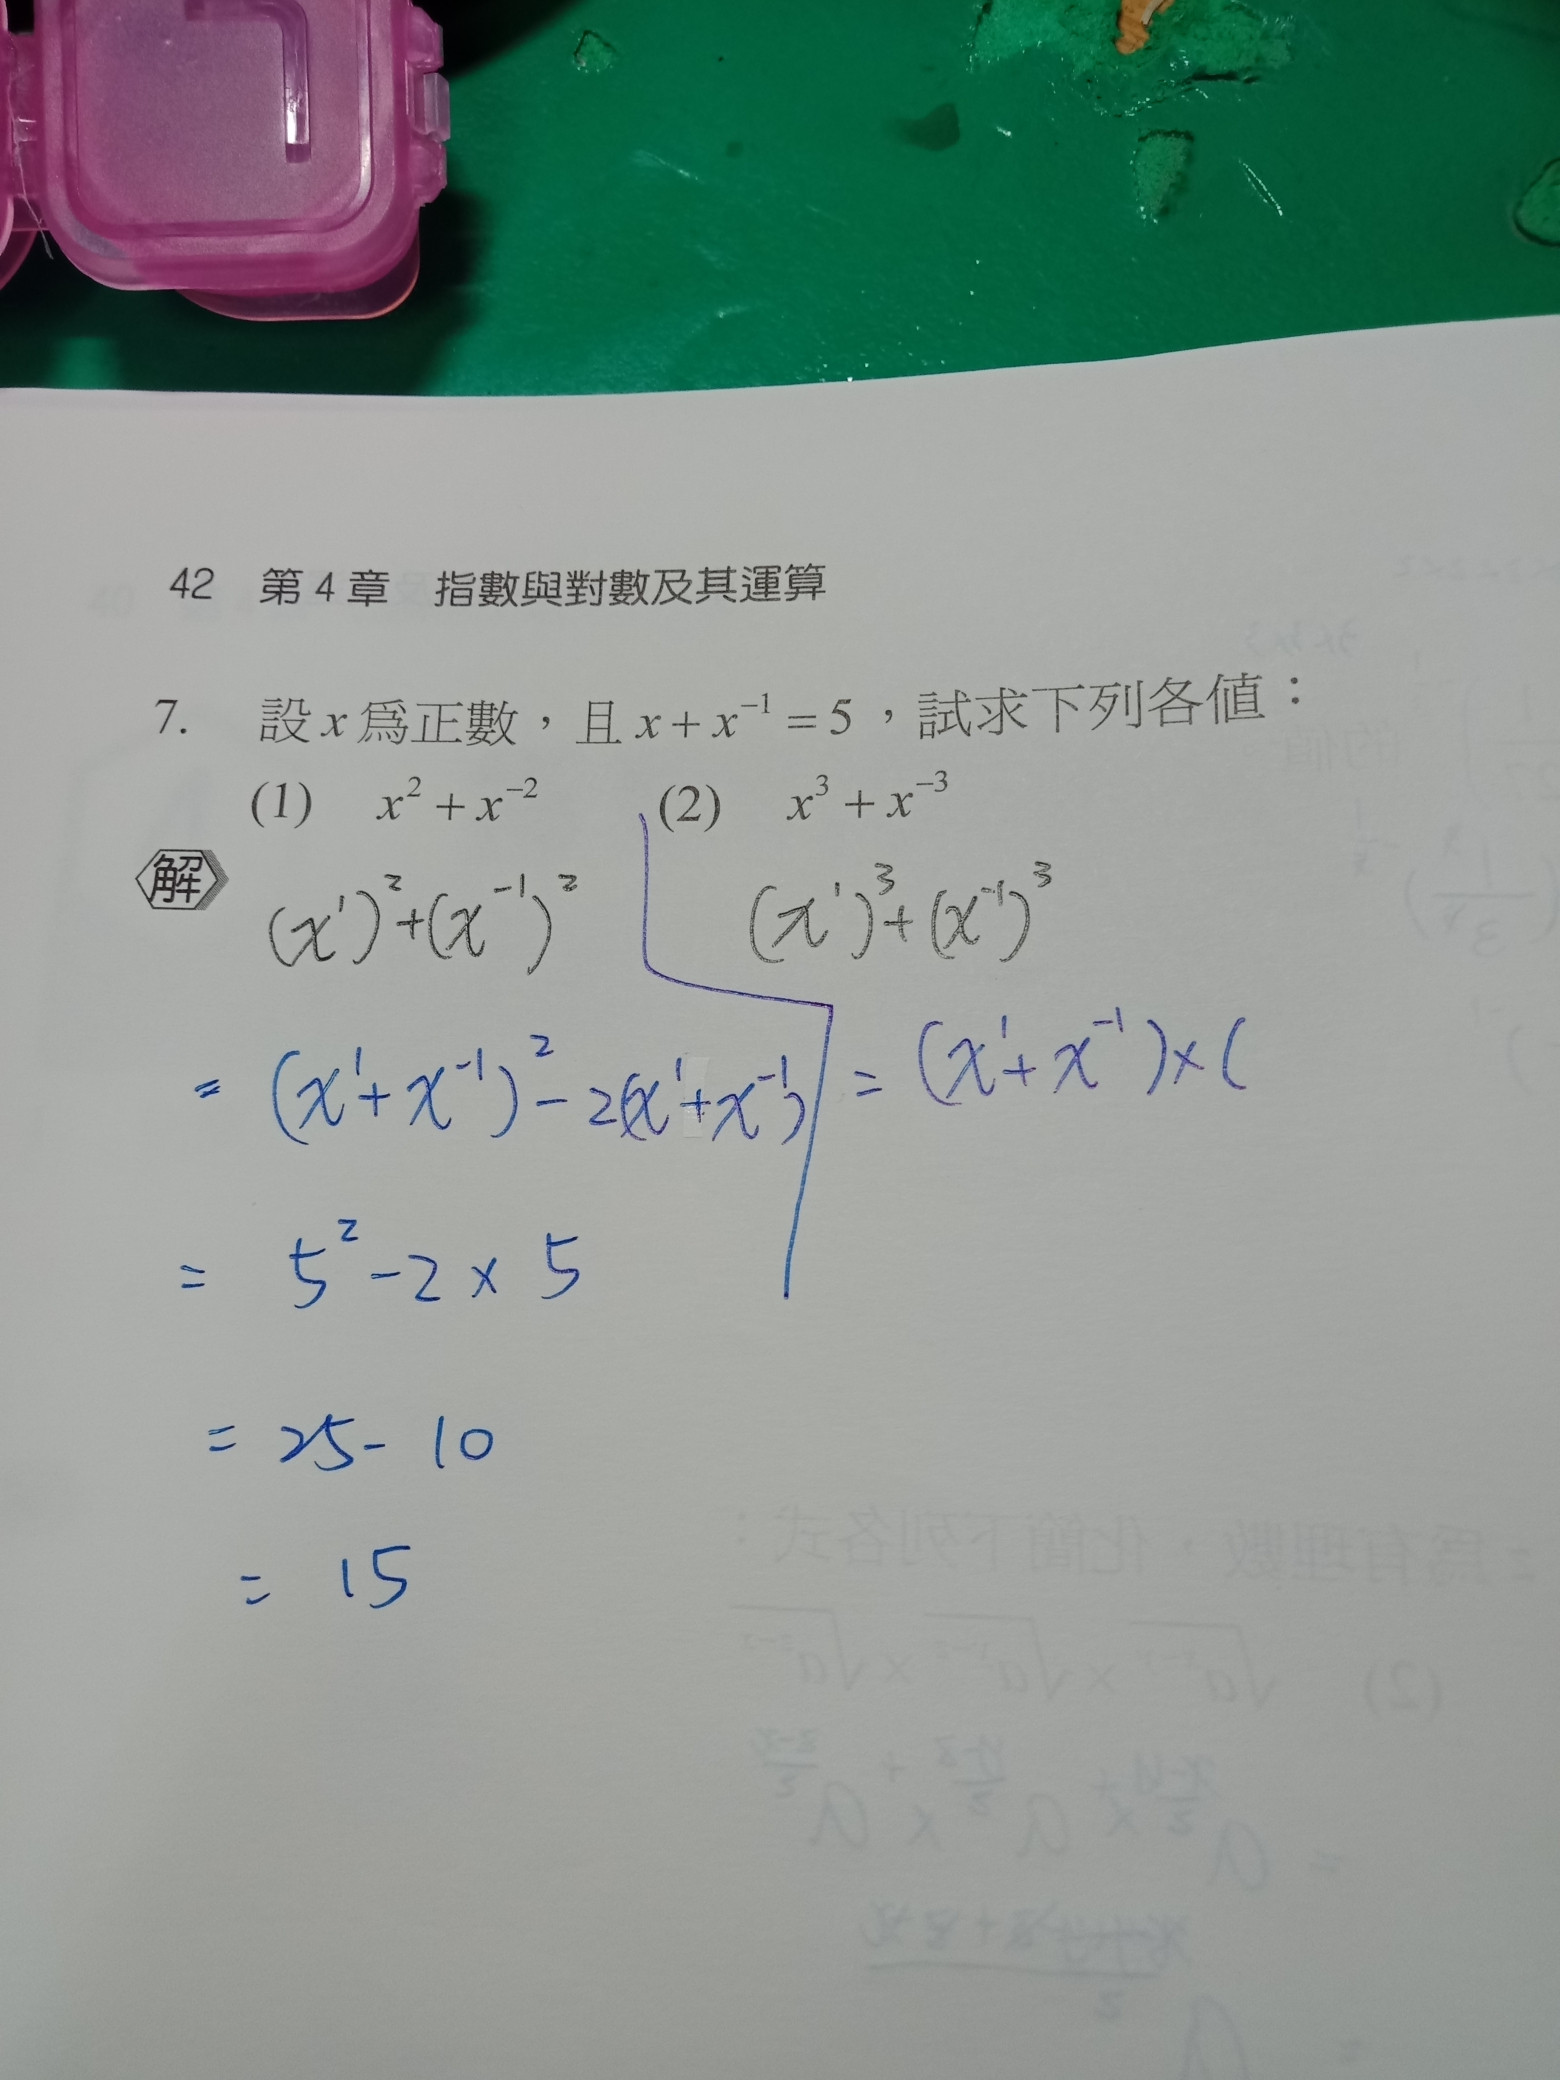 42 第4章 指數與對數及其運算
7. 設x為正數，且x+x⁻¹=5，試求下列各值：
(1) x²+x⁻² (2) x³+x⁻³
解
(x¹)²+(x⁻¹)²
= (x¹+x⁻¹)²-2(x¹+x⁻¹)
= 5²-2×5
= 25-10
= 15
(x¹)³+(x⁻¹)³
= (x¹+x⁻¹)×(